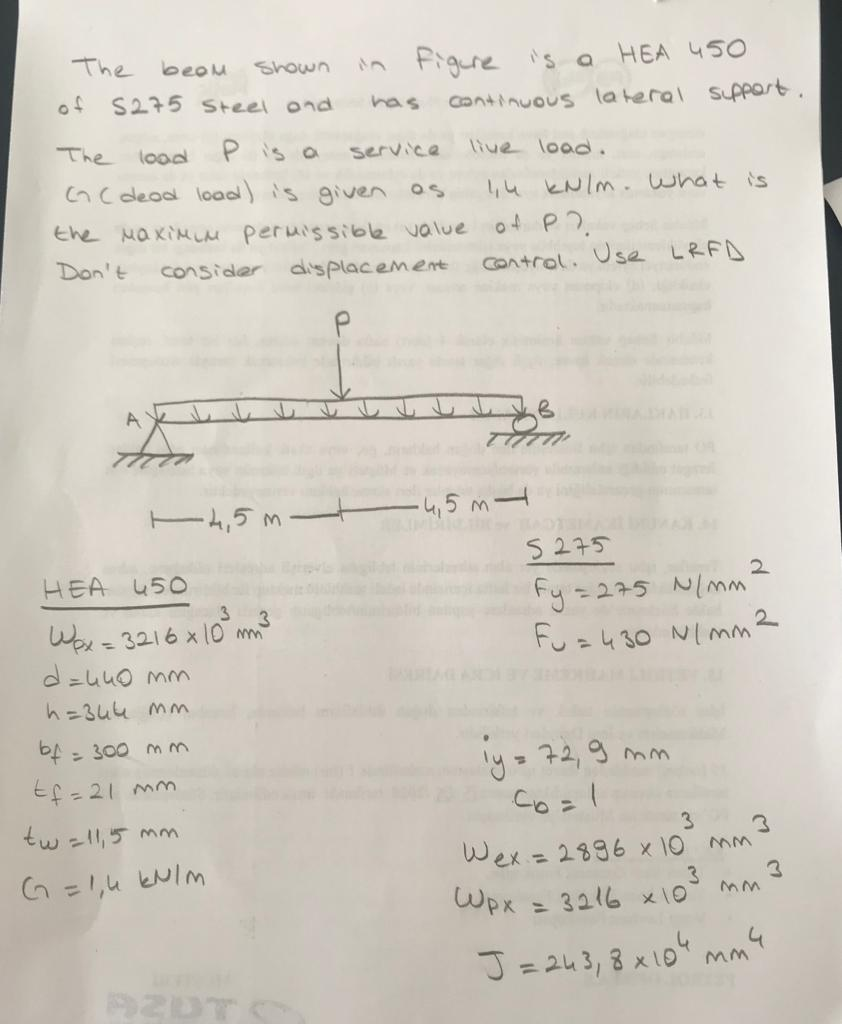 The beam shown in Figure is a HEA 450
of S275 Steel and has continuous lateral support.
The load P is a service live load.
G (dead load) is given as 1,4 kN/m. What is
the maximum permissible value of P?
Don't consider displacement control. Use LRFD
P
A
B
4,5 m
4,5 m
HEA 450
Wpx = 3216 x 10³ mm³
d = 440 mm
h = 344 mm
bf = 300 mm
tf = 21 mm
tw = 11,5 mm
G = 1,4 kN/m
S275
Fy = 275 N/mm²
Fu = 430 N/mm²
iy = 72,9 mm
Cb = 1
Wex = 2896 x 10³ mm³
Wpx = 3216 x 10³ mm³
J = 243,8 x 10⁴ mm⁴